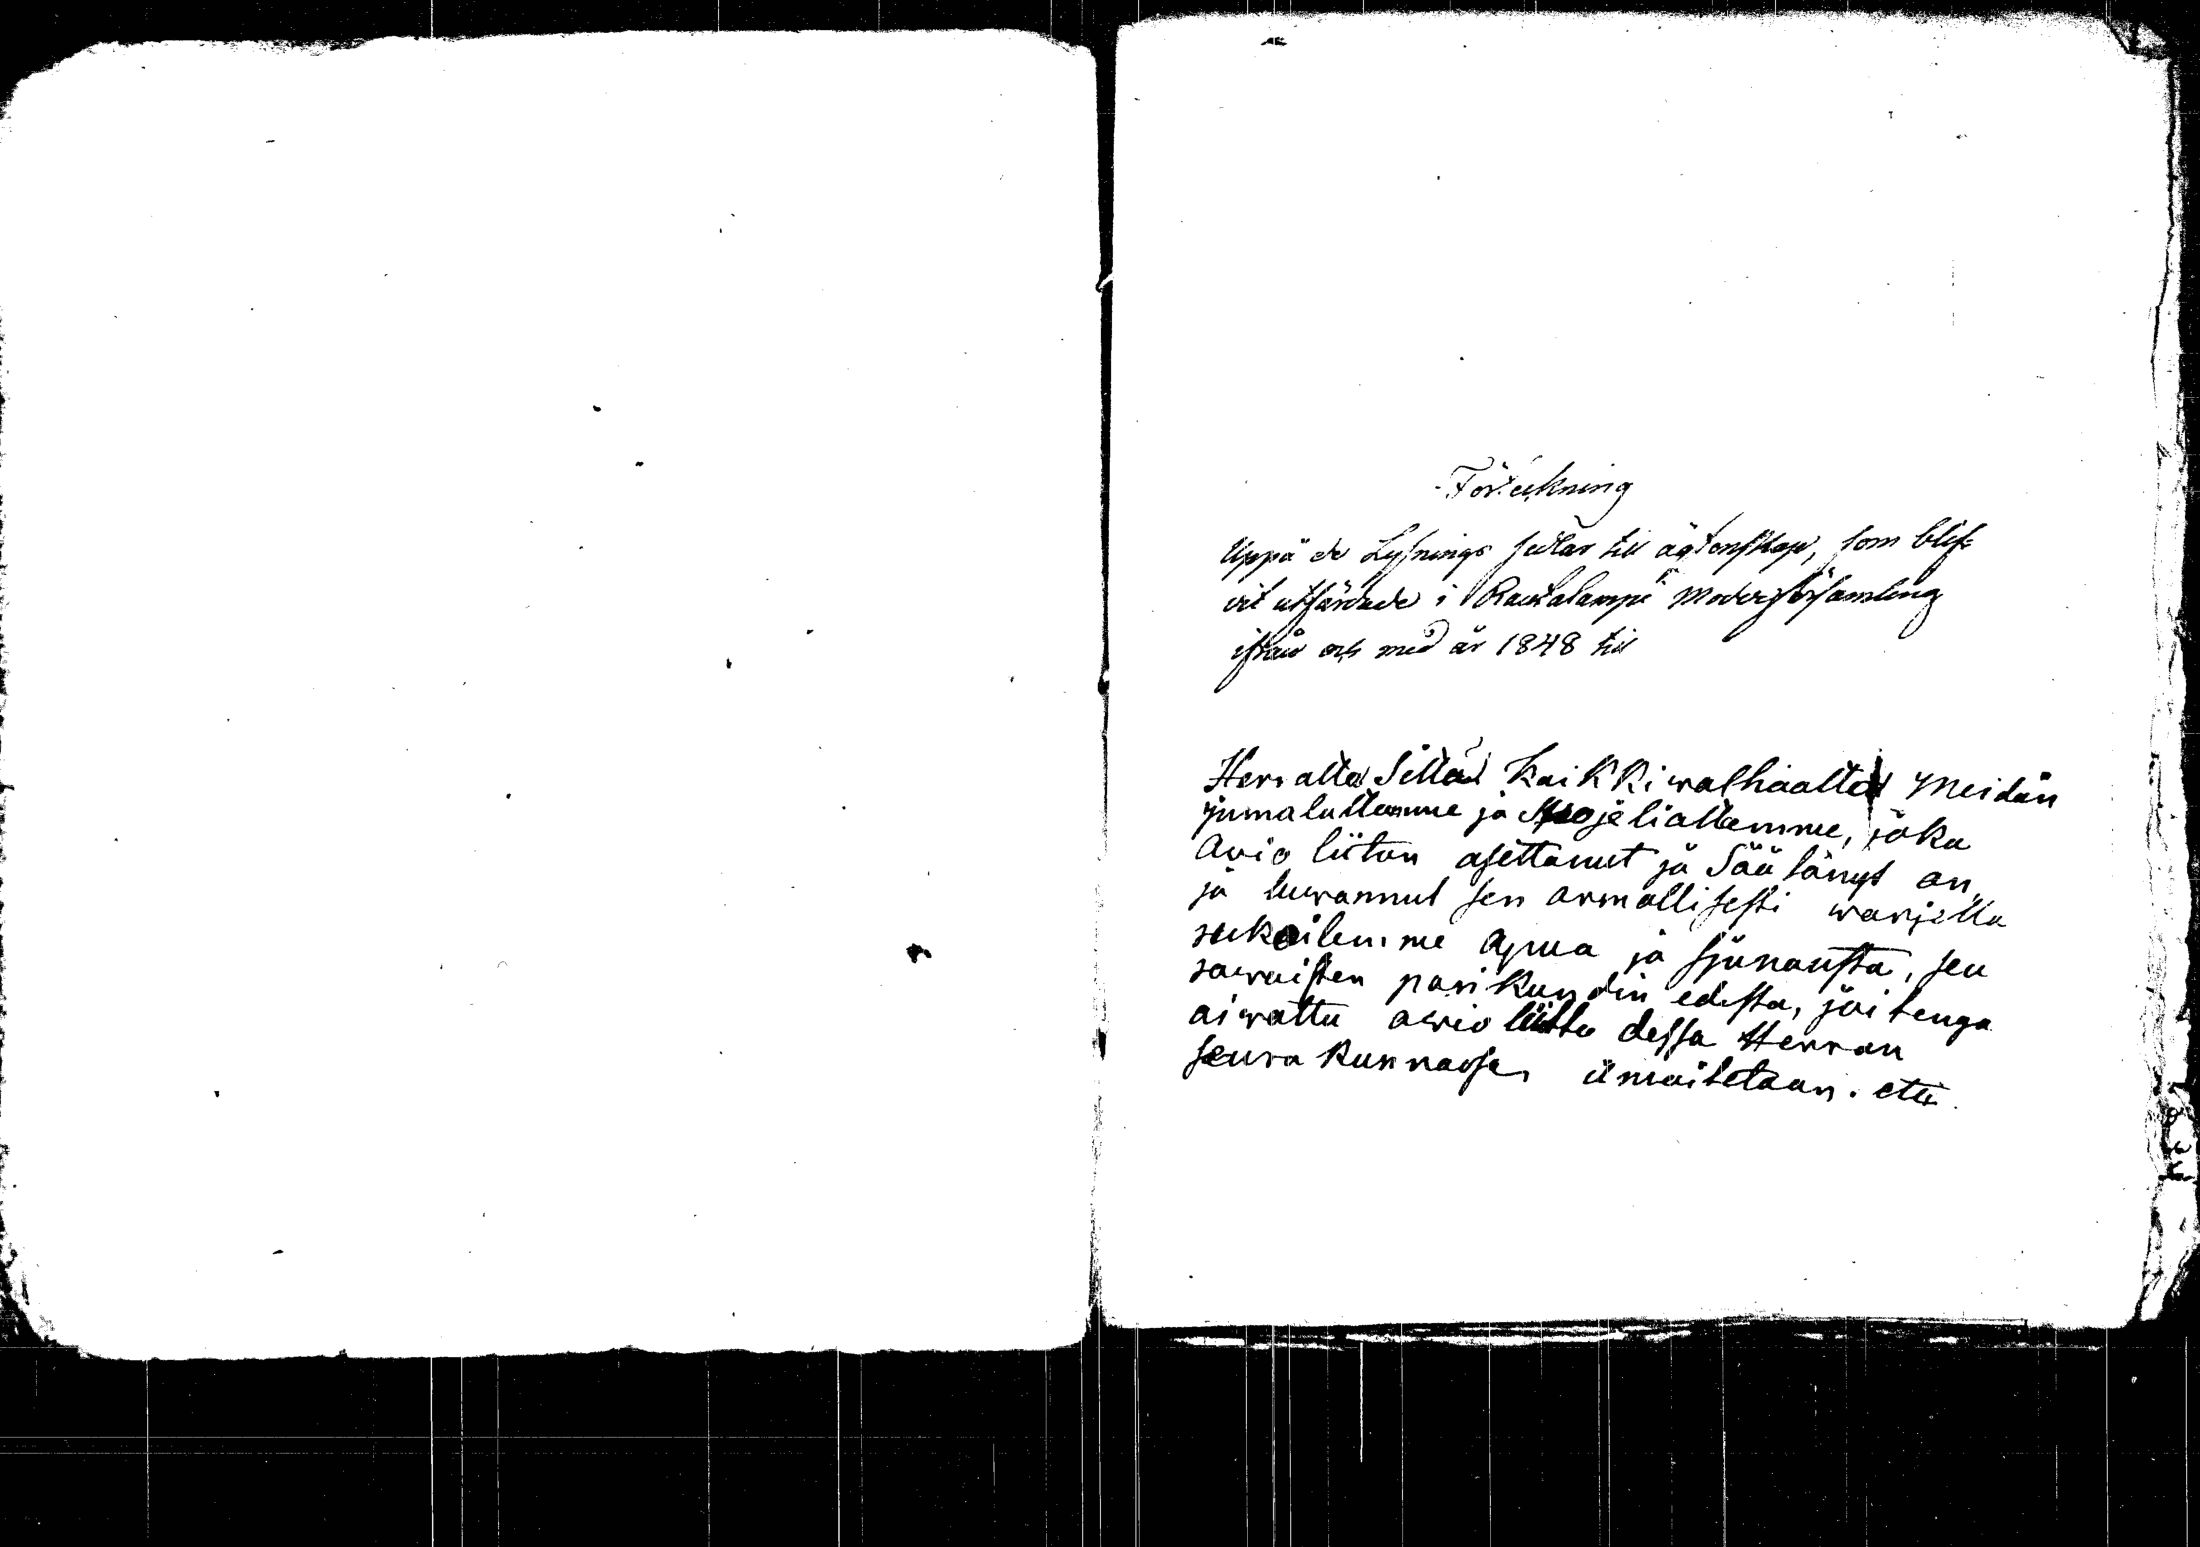 Förteckning
Uppå de Lysnings sedlar till ägtenskap, som blif-
vit utfärdade i Rautalampi Moderförsamling
ifrån och med år 1848 till
Herralta Siltä Kaikkiwalhiaalta Meidän
jumalaltamme ja Suojeliattamme, joka
Avio liiton asettanut ja Säätänyt on,
ja luwannut sen armollisesti warjella
rukoilemme apua ja sjunausta, sen
sawaisten parikundin edesta, joitenga
aiwattu awio liitto dessa Herran
seura kunnassa ilmoitetaan. etta